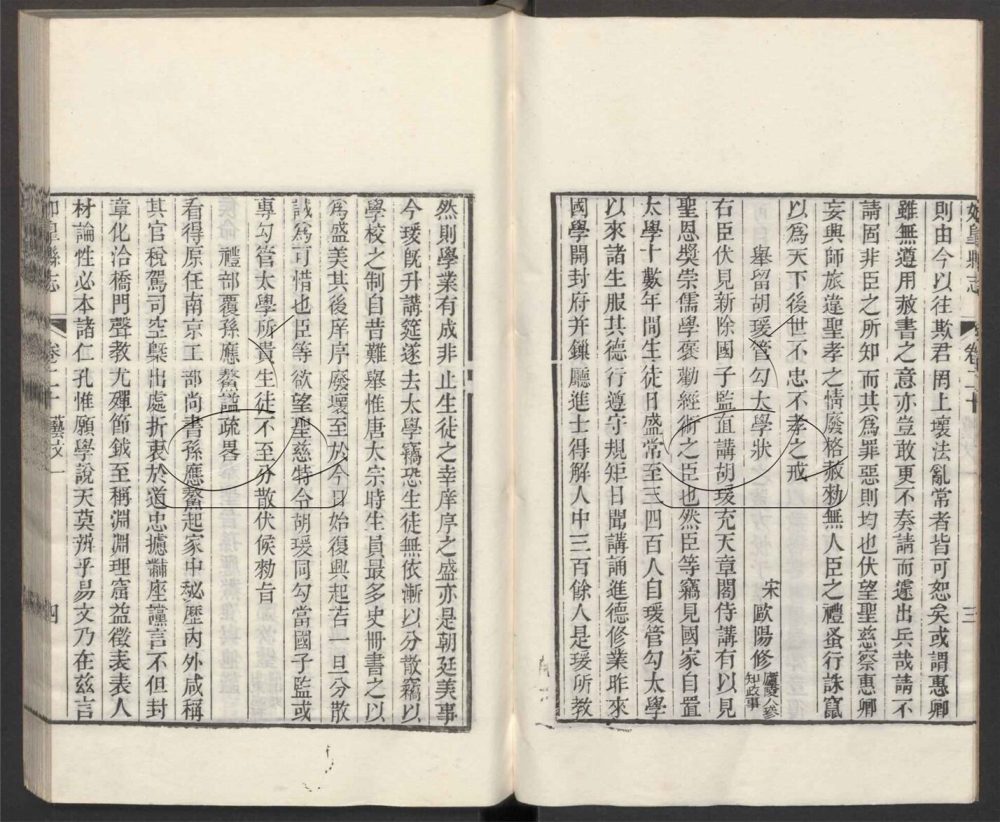 如皐縣志
卷二十
三
則由今以往欺君罔上壞法亂常者皆可恕矣或謂惠卿
雖無遵用赦書之意亦豈敢更不奏請而遽出兵哉請不
請固非臣之所知而其爲罪惡則均也伏望聖慈察惠卿
妄興師旅違聖孝之情廢格赦勑無人臣之禮蚤行誅竄
以爲天下後世不忠不孝之戒
舉留胡瑗管勾太學狀 宋 歐陽修 廬陵人參知政事
右臣伏見新除國子監直講胡瑗充天章閣侍講有以見
聖恩奬崇儒學褒勸經術之臣也然臣等竊見國家自置
太學十數年間生徒日盛常至三四百人自瑗管勾太學
以來諸生服其德行遵守規矩日聞講誦進德修業昨來
國學開封府并鏁廳進士得解人中三百餘人是瑗所教
然則學業有成非止生徒之幸庠序之盛亦是朝廷美事
今瑗旣升講筵遂去太學竊恐生徒無依漸以分散竊以
學校之制自昔難舉惟唐太宗時生員最多史冊書之以
爲盛美其後庠序廢壞至於今日始復興起若一旦分散
誠爲可惜也臣等欲望聖慈特令胡瑗同勾當國子監或
專勾管太學所貴生徒不至分散伏候勑旨
禮部覆孫應鰲謚疏畧
看得原任南京工部尚書孫應鰲起家中秘歷內外咸稱
其官稅駕司空槩出處折衷於道忠攄黼座讜言不但封
章化洽橋門聲教尤殫節鉞至稱淵淵理窟益徵表表人
材論性必本諸仁孔惟願學說天莫辨乎易文乃在茲言
如皐縣志
卷二十 藝文一
四